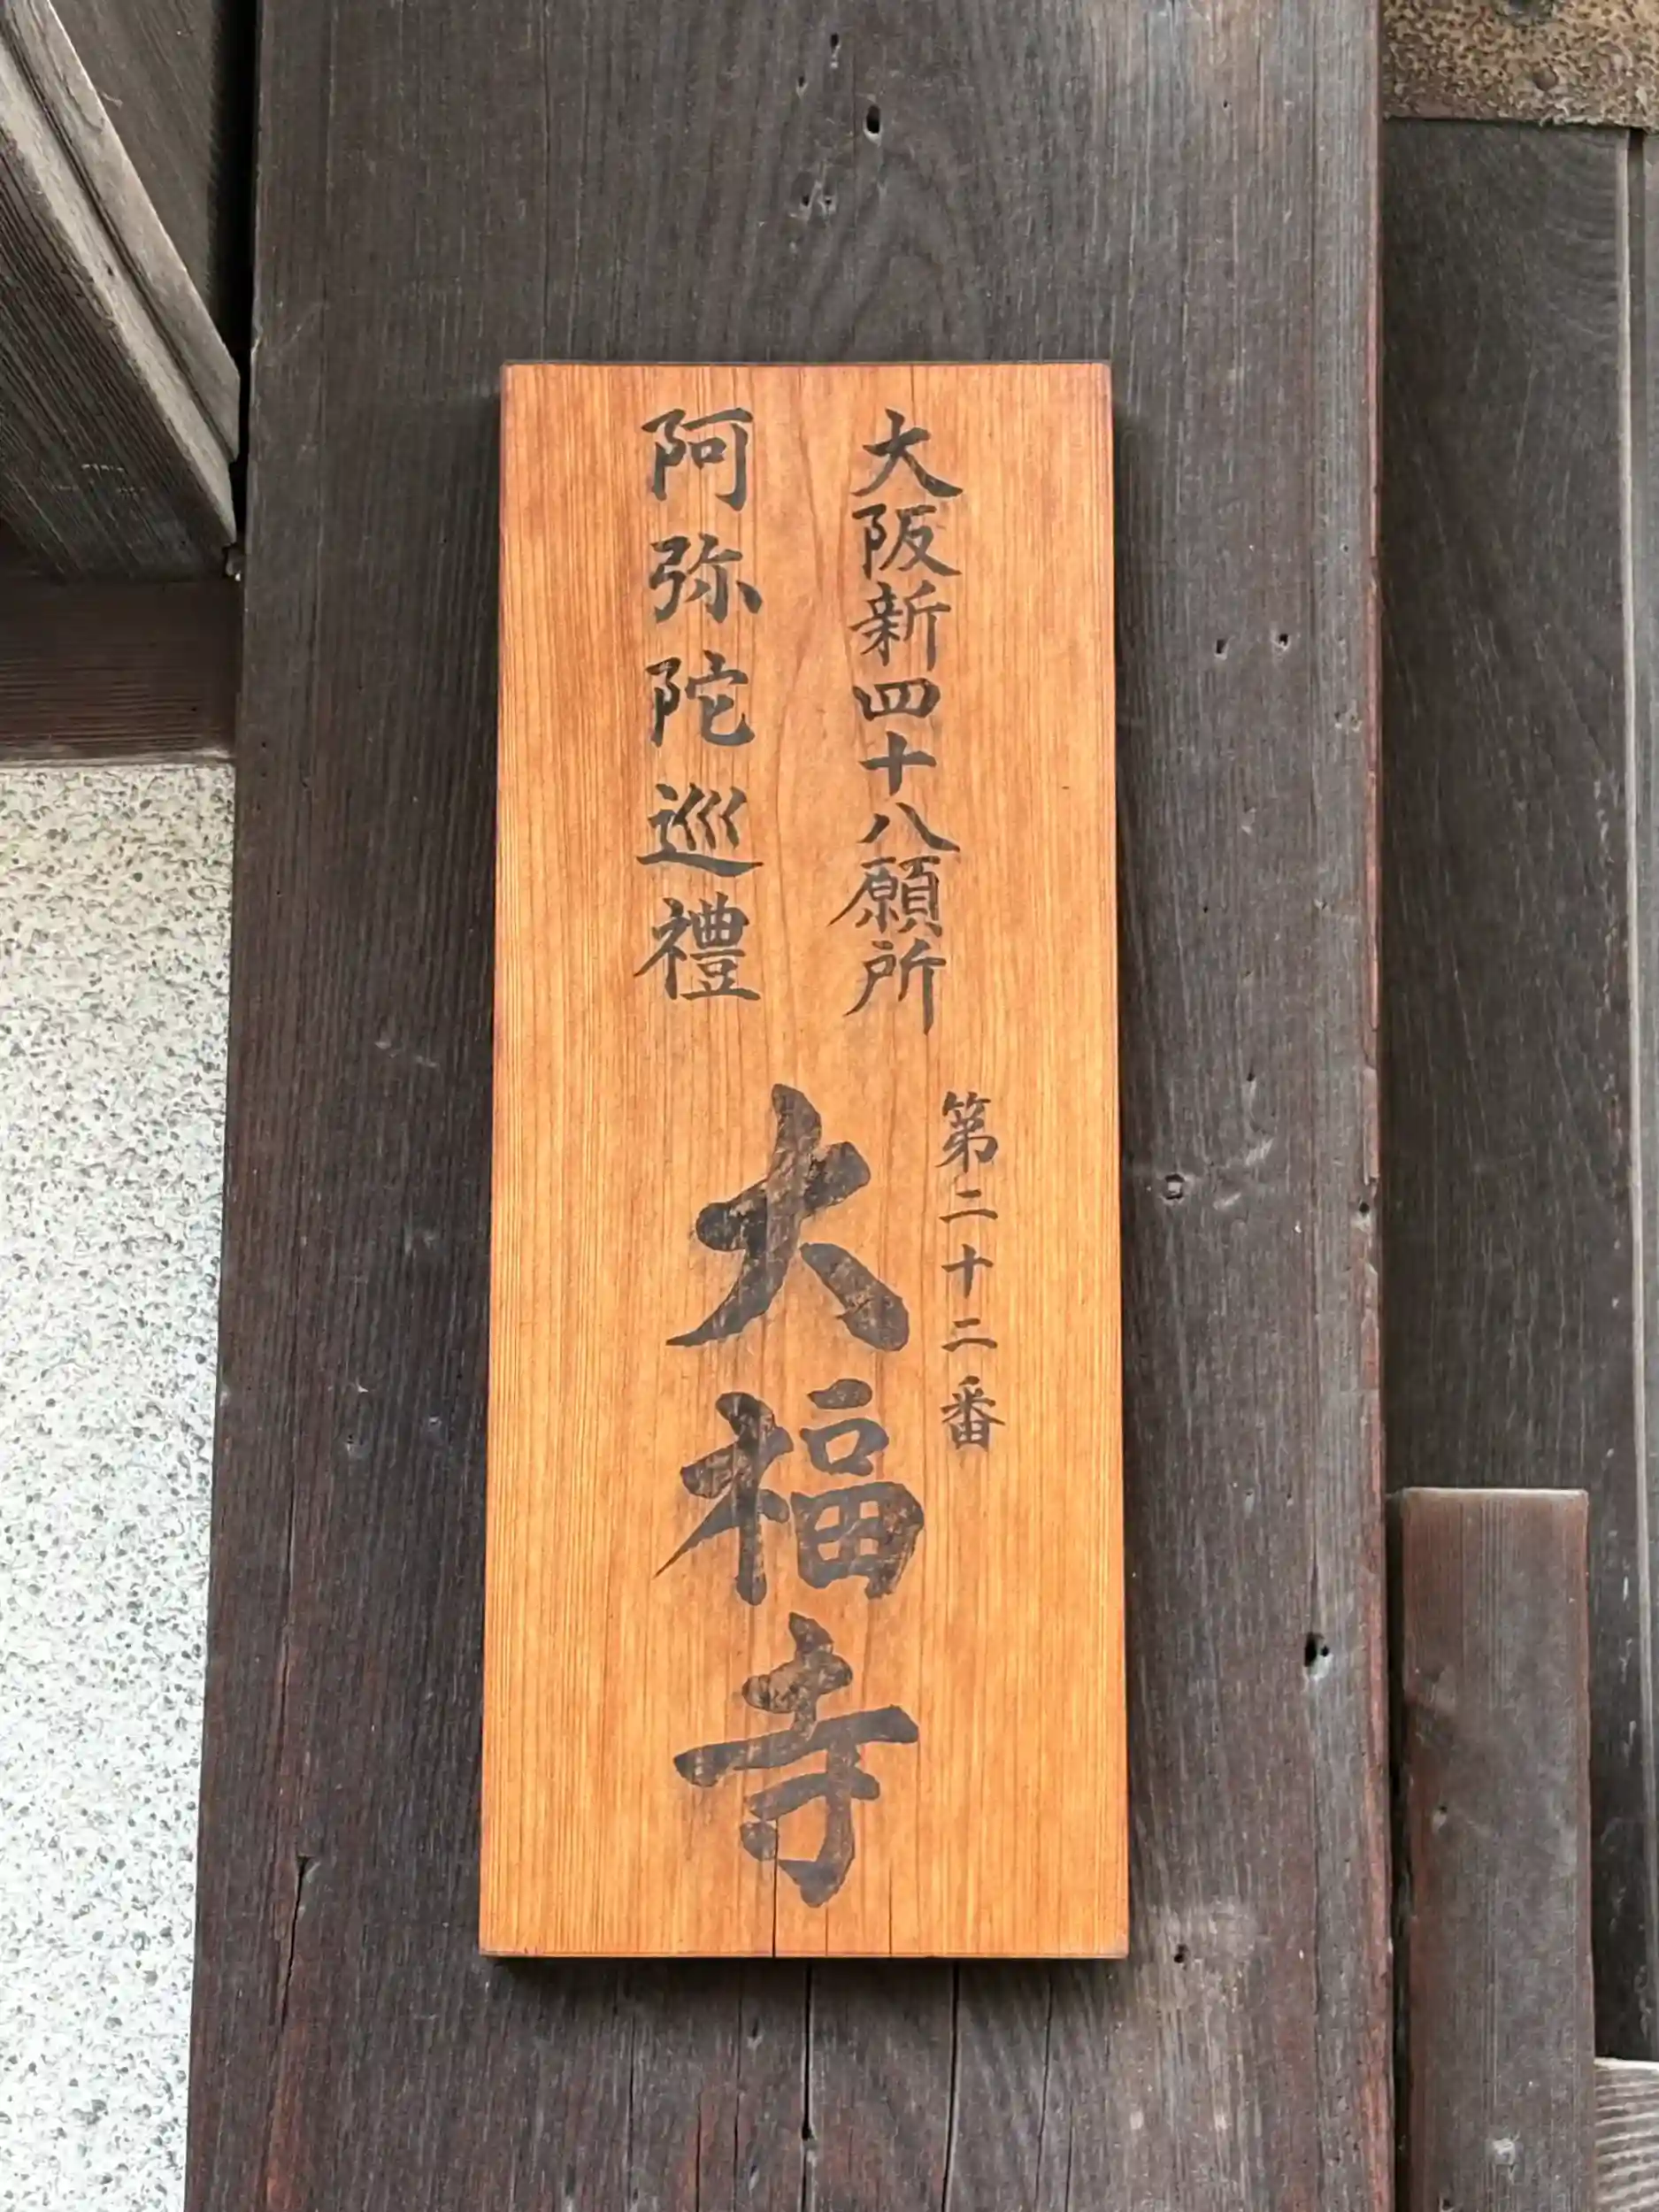 大阪新四十八願所
阿弥陀巡禮
第二十二番
大福寺